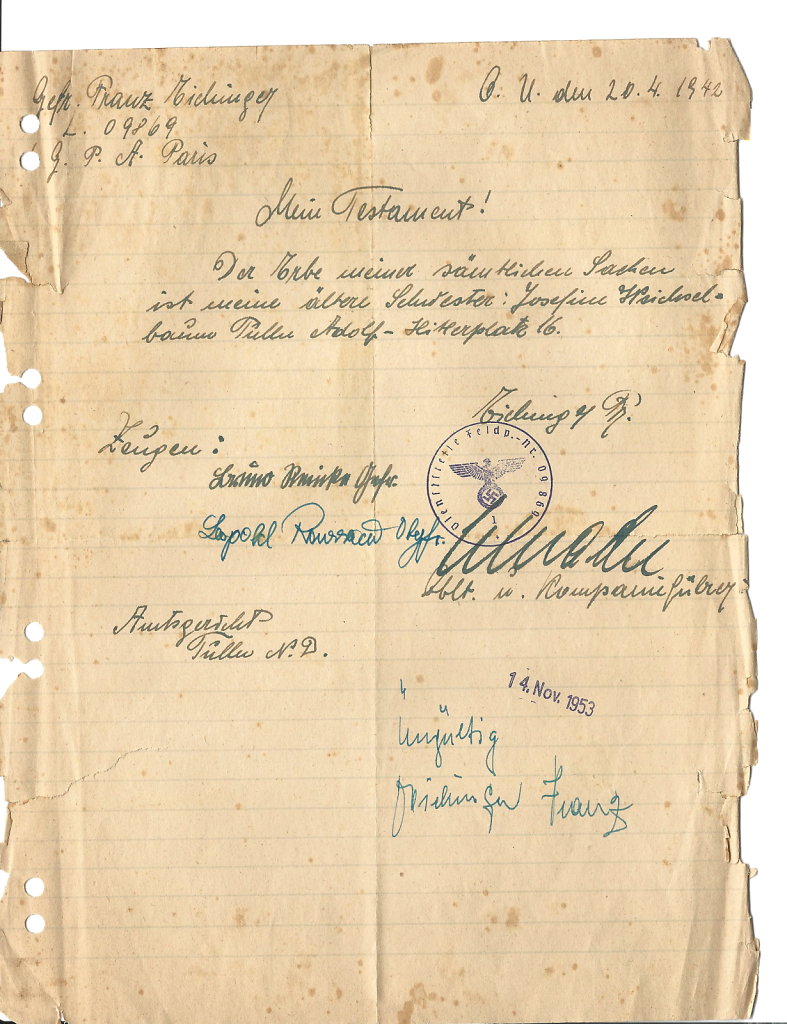 Gefr. Franz Eichinger
L. 09869
G. P. A. Paris
O. U. den 20.4.1942
Mein Testament!
Der Erbe meiner sämtlichen Sachen
ist meine ältere Schwester: Josefine Weichsel-
baum Tulln Adolf-Hitlerplatz 16.
Eichinger Fr.
Zeugen:
Bruno Reinke Gefr.
Leopold Obgfr.
Dienststelle Feldp.-Nr. 09869
Oblt. u. Kompanieführer
Amtsgericht
Tulln N.D.
14. Nov. 1953
Ungültig
Eichinger Franz